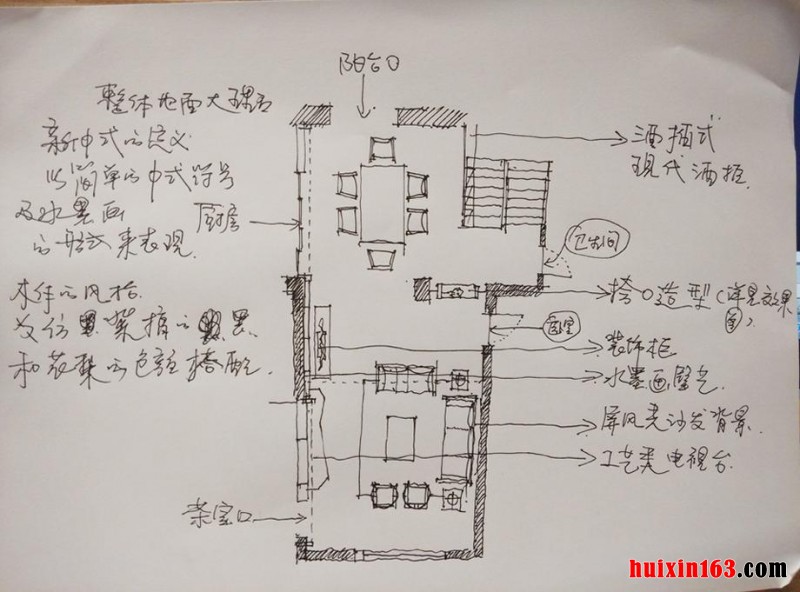 阳台口
整体地面大理石
新中式的定义
以简单的中式符号
及水墨画
的形式来表现.
厨房
木作的风格.
和花梨的色彩搭配.
茶室口
酒插式
现代酒柜.
卫生间
垮口造型(详见效果图).
卧室
装饰柜
水墨画壁艺
屏风类沙发背景.
工艺类电视台.
huixin163.com